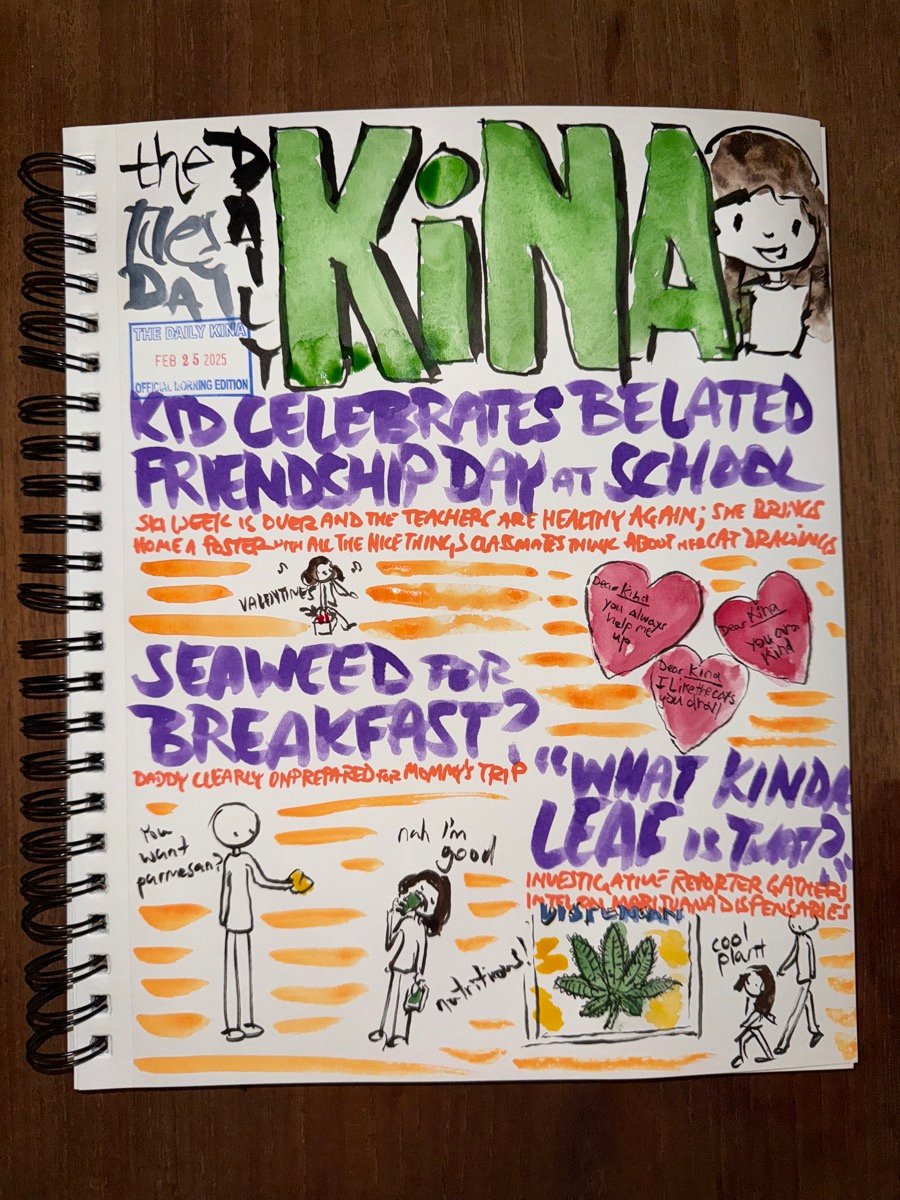 the
DAILY
TUESDAY
KiNA
THE DAILY KINA
FEB 25 2025
OFFICIAL MORNING EDITION
KID CELEBRATES BELATED
FRIENDSHIP DAY AT SCHOOL
SKI WEEK IS OVER AND THE TEACHERS ARE HEALTHY AGAIN; SHE BRINGS
HOME A POSTER WITH ALL THE NICE THINGS CLASSMATES THINK ABOUT HER CAT DRAWINGS
VALENTINES
Dear Kina
you always
help me
up
Dear Kina
you are
kind
Dear Kina
I like the cats
you draw!
SEAWEED FOR
BREAKFAST?
DADDY CLEARLY UNPREPARED FOR MOMMY'S TRIP
You
want
parmesan?
nah I'm
good
nutritious!
"WHAT KINDA
LEAF IS THAT?"
INVESTIGATIVE REPORTER GATHERS
INTEL ON MARIJUANA DISPENSARIES
cool
plant